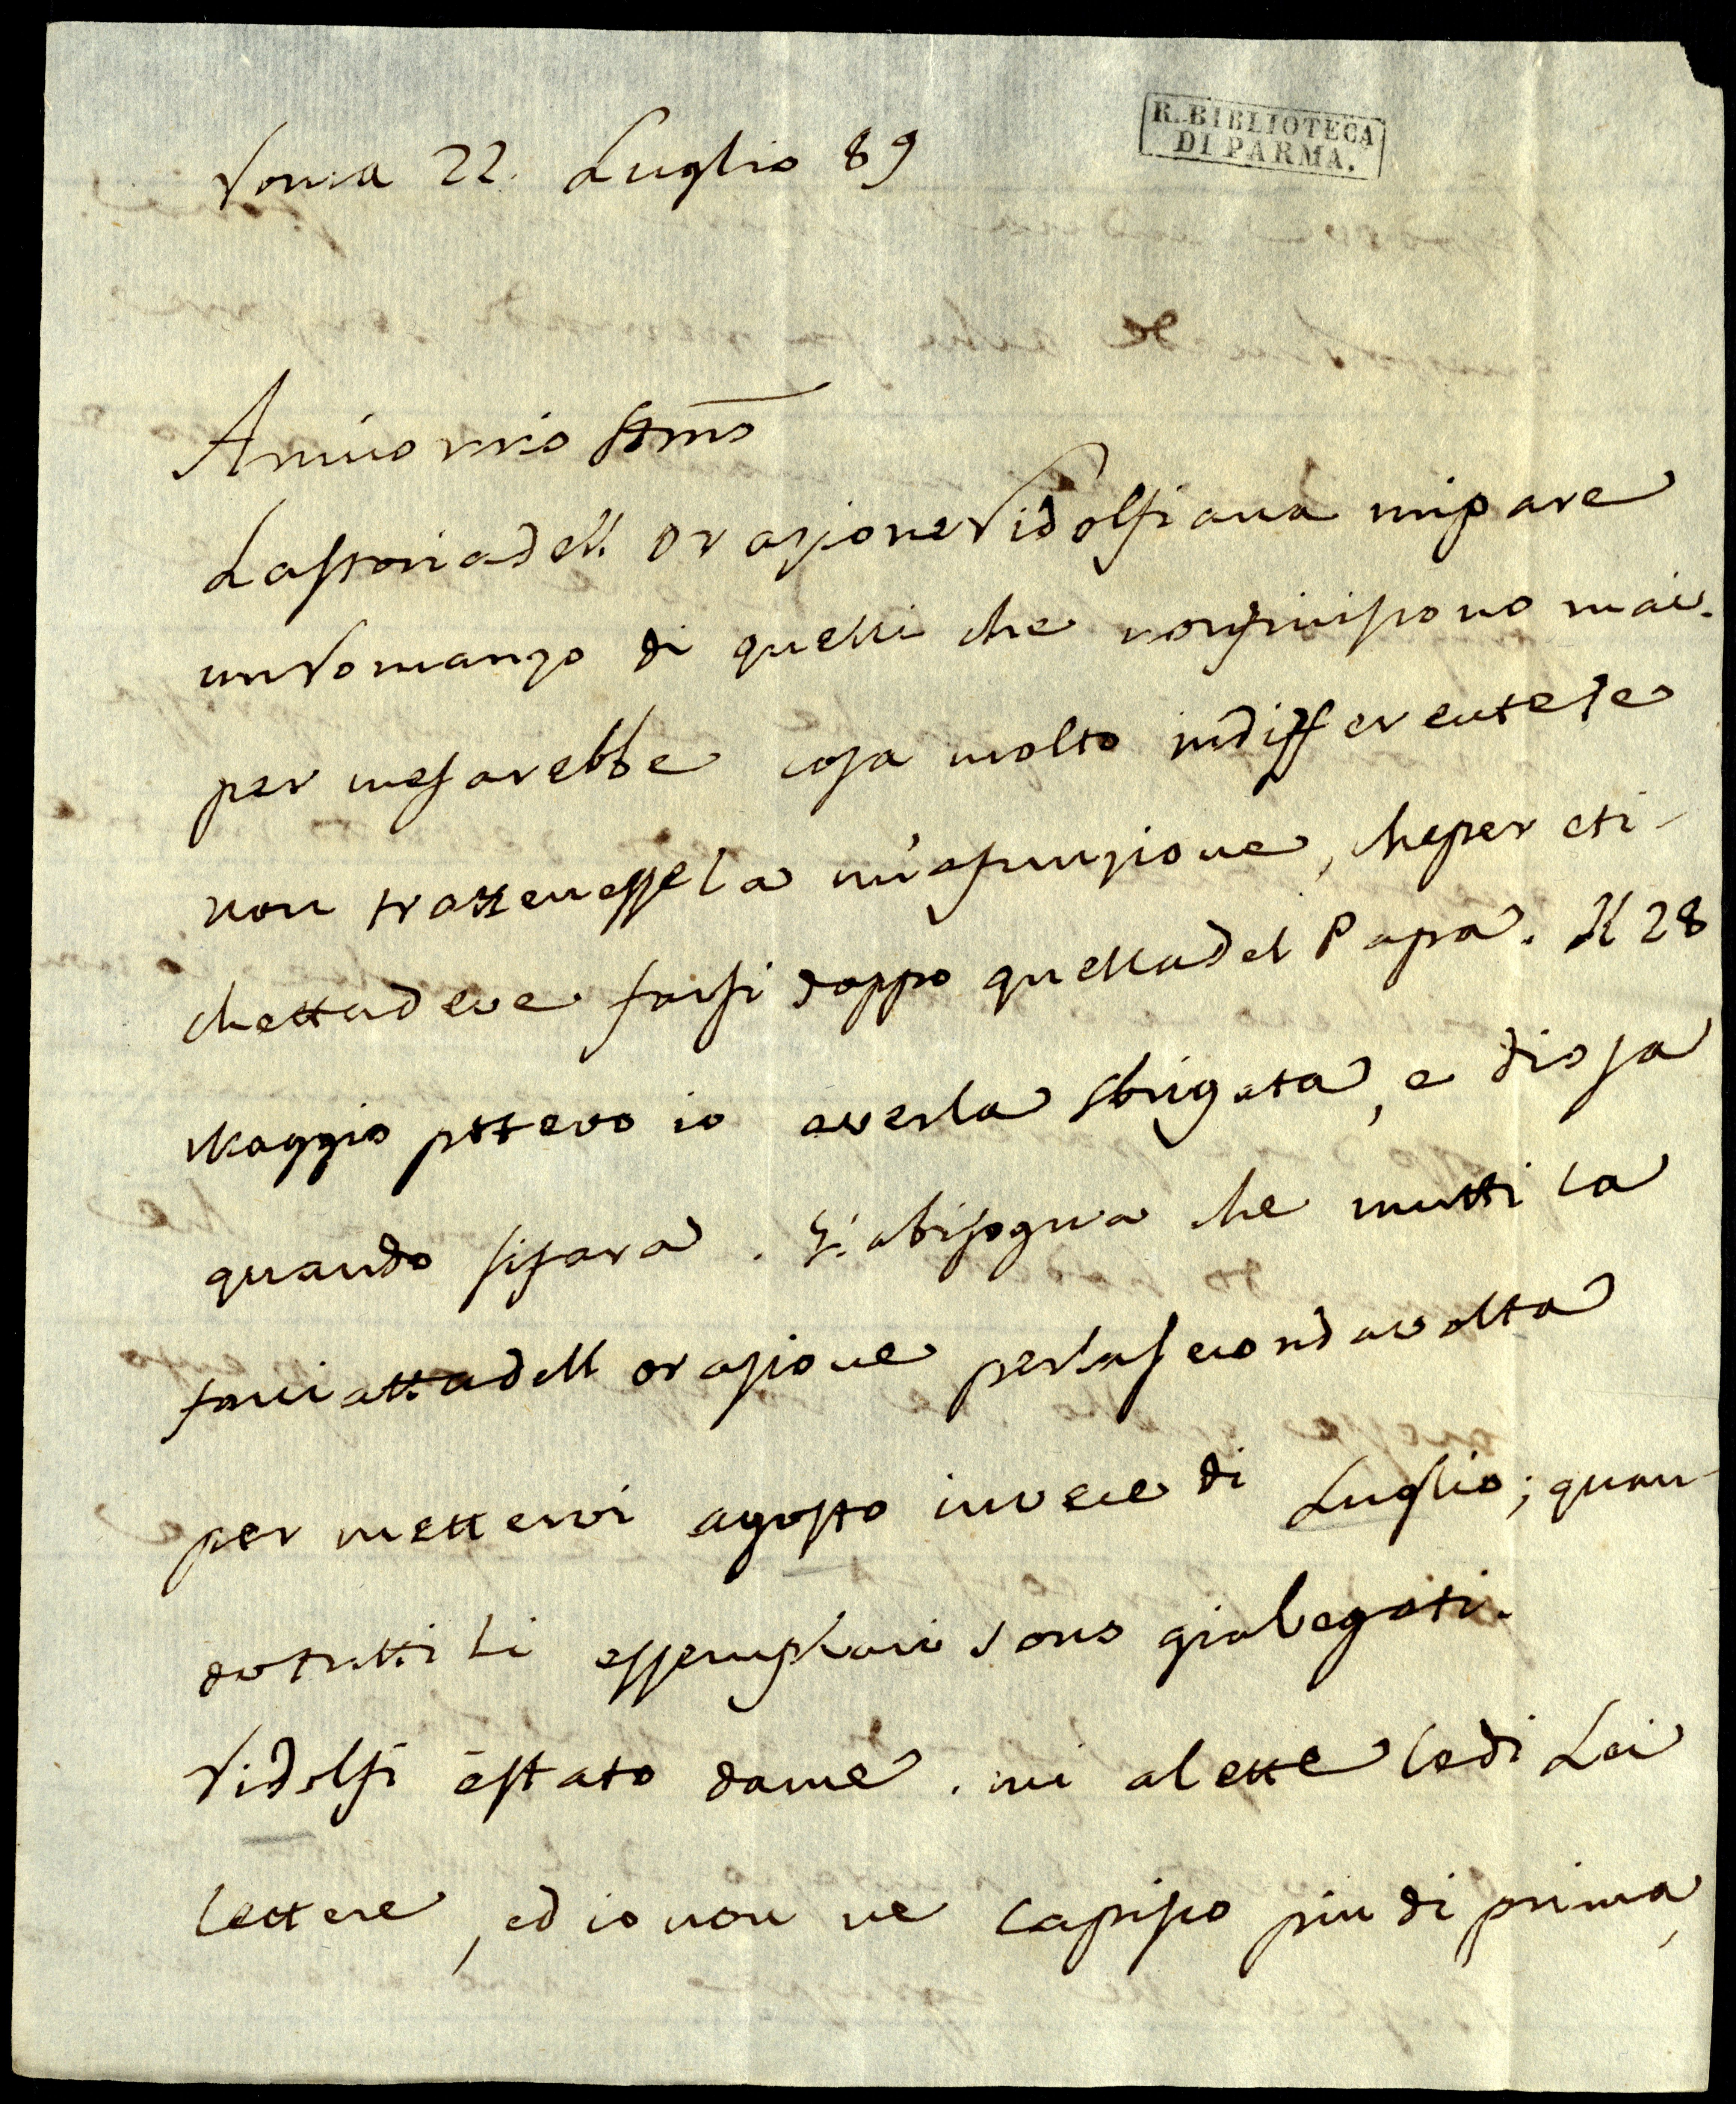 R. BIBLIOTECA
DI PARMA.
Roma 22. Luglio 89
Amico mio Stmo
La storia dell orazione Ridolfiana mi pare
un Romanzo di quelli che non finiscono mai.
per me sarebbe cosa molto indifferente se
non trattenesse la mia funzione, che per eti-
chetta deve farsi doppo quella del Papa. Il 28
Maggio pottevo io averla sbrigata, e dio sa
quando si fara. Si abisogna che mutti la
facciatta dell orazione per la seconda volta
per mettervi agosto invece di Luglio; quan-
do tutti li essemplari sono gia legati.
Ridolfi è stato da me. mi a lette le di Lei
lettere, ed io non ne capisco piu di prima,